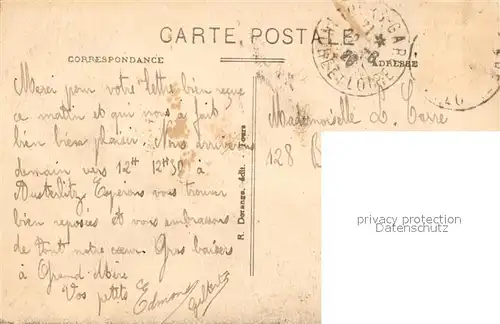 CARTE POSTALE
CORRESPONDANCE
ADRESSE
Merci pour votre lettre bien reçue
ce matin et qui nous a fait
bien bien plaisir. Nous arriverons
demain vers 12H 12H30 à
Austerlitz Esperons vous trouver
bien reposées et vous embrassons
de tout notre cœur. Gros baisers
à Grand Mère
Vos petits Edmond
Gilberte
R. Dorange, édit. - Tours
Mademoiselle L. Carre
128 B
privacy protection
Datenschutz
GARE
ET-LOIRE